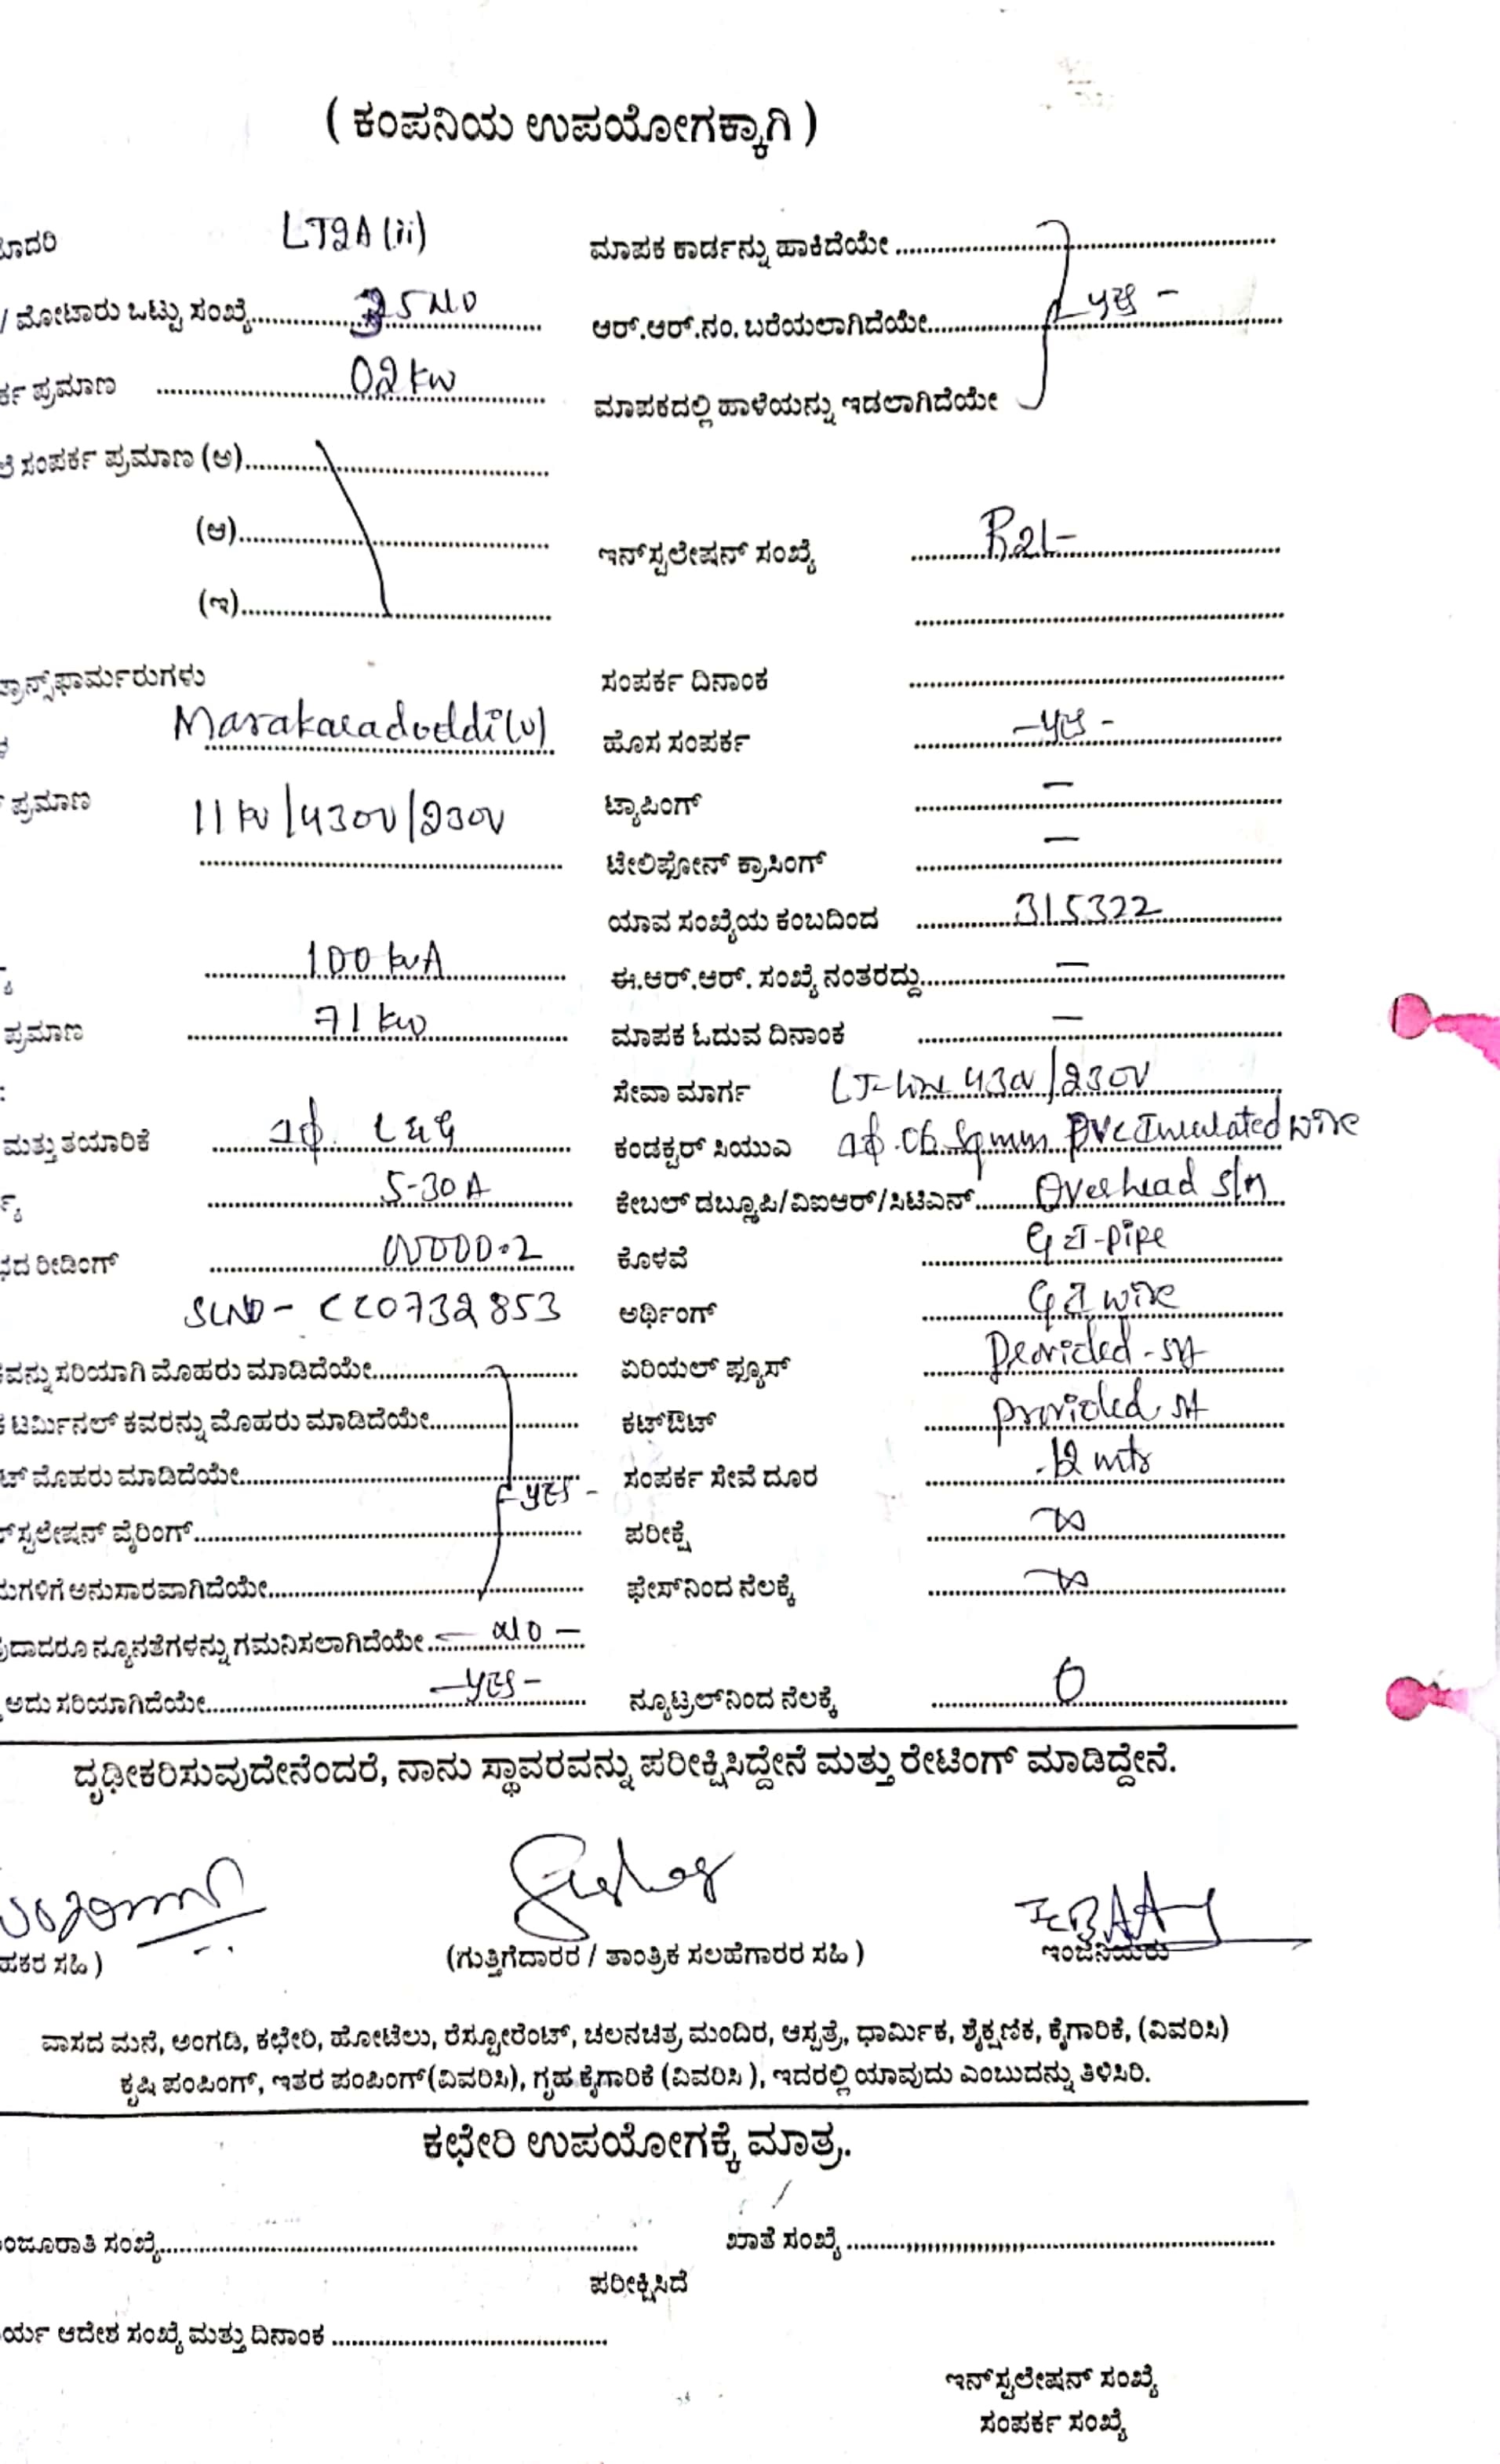 ( ಕಂಪನಿಯ ಉಪಯೋಗಕ್ಕಾಗಿ )
ಾದರಿ LT2A(ii) ಮಾಪಕ ಕಾರ್ಡನ್ನು ಹಾಕಿದೆಯೇ
/ ಮೋಟಾರು ಒಟ್ಟು ಸಂಖ್ಯೆ 5 NO ಆರ್.ಆರ್.ನಂ. ಬರೆಯಲಾಗಿದೆಯೇ - yes -
ರ್ಕ ಪ್ರಮಾಣ 02 kw ಮಾಪಕದಲ್ಲಿ ಹಾಳೆಯನ್ನು ಇಡಲಾಗಿದೆಯೇ
ಸಂಪರ್ಕ ಪ್ರಮಾಣ (ಅ)
(ಆ) ಇನ್‌ಸ್ಟಲೇಷನ್ ಸಂಖ್ಯೆ
(ಇ)
ಟ್ರಾನ್ಸ್‌ಫಾರ್ಮರುಗಳು ಸಂಪರ್ಕ ದಿನಾಂಕ
Marakaladoddi(v) ಹೊಸ ಸಂಪರ್ಕ - yes -
ಪ್ರಮಾಣ 11 kv/430v/230v ಟ್ಯಾಪಿಂಗ್ —
ಟೇಲಿಫೋನ್ ಕ್ರಾಸಿಂಗ್ —
ಯಾವ ಸಂಖ್ಯೆಯ ಕಂಬದಿಂದ 315322
100 kvA ಈ.ಆರ್.ಆರ್. ಸಂಖ್ಯೆ ನಂತರದ್ದು —
ಪ್ರಮಾಣ 71 kw ಮಾಪಕ ಓದುವ ದಿನಾಂಕ —
: ಸೇವಾ ಮಾರ್ಗ LT-Line 430v/230v
ಮತ್ತು ತಯಾರಿಕೆ 1ϕ L&G ಕಂಡಕ್ಟರ್ ಸಿಯುಎ 1ϕ 06 Sqmm PVC Insulated wire
5-30A ಕೇಬಲ್ ಡಬ್ಲ್ಯೂಪಿ/ವಿಐಆರ್/ಸಿಟಿಎನ್ Overhead S/M
ರೀಡಿಂಗ್ 0000.2 ಕೊಳವೆ GI-pipe
SLNO - CC0732853 ಅರ್ಥಿಂಗ್ GI wire
ವನ್ನು ಸರಿಯಾಗಿ ಮೊಹರು ಮಾಡಿದೆಯೇ ಏರಿಯಲ್ ಫ್ಯೂಸ್ Provided
ಟರ್ಮಿನಲ್ ಕವರನ್ನು ಮೊಹರು ಮಾಡಿದೆಯೇ ಕಟ್‌ಔಟ್ provided
ಟ್ ಮೊಹರು ಮಾಡಿದೆಯೇ - yes - ಸಂಪರ್ಕ ಸೇವೆ ದೂರ 12 mts
‌ಸ್ಟಲೇಷನ್ ವೈರಿಂಗ್ ಪರೀಕ್ಷೆ ∞
ಮಗಳಿಗೆ ಅನುಸಾರವಾಗಿದೆಯೇ ಫೇಸ್‌ನಿಂದ ನೆಲಕ್ಕೆ ∞
ುದಾದರೂ ನ್ಯೂನತೆಗಳನ್ನು ಗಮನಿಸಲಾಗಿದೆಯೇ — NO —
ಅದು ಸರಿಯಾಗಿದೆಯೇ - yes - ನ್ಯೂಟ್ರಲ್‌ನಿಂದ ನೆಲಕ್ಕೆ 0
ದೃಢೀಕರಿಸುವುದೇನೆಂದರೆ, ನಾನು ಸ್ಥಾವರವನ್ನು ಪರೀಕ್ಷಿಸಿದ್ದೇನೆ ಮತ್ತು ರೇಟಿಂಗ್ ಮಾಡಿದ್ದೇನೆ.
ಹಕರ ಸಹಿ ) (ಗುತ್ತಿಗೆದಾರರ / ತಾಂತ್ರಿಕ ಸಲಹೆಗಾರರ ಸಹಿ ) ಇಂಜಿನಿಯರು
ವಾಸದ ಮನೆ, ಅಂಗಡಿ, ಕಛೇರಿ, ಹೋಟೆಲು, ರೆಸ್ಟೋರೆಂಟ್, ಚಲನಚಿತ್ರ ಮಂದಿರ, ಆಸ್ಪತ್ರೆ, ಧಾರ್ಮಿಕ, ಶೈಕ್ಷಣಿಕ, ಕೈಗಾರಿಕೆ, (ವಿವರಿಸಿ)
ಕೃಷಿ ಪಂಪಿಂಗ್, ಇತರ ಪಂಪಿಂಗ್(ವಿವರಿಸಿ), ಗೃಹ ಕೈಗಾರಿಕೆ (ವಿವರಿಸಿ ), ಇದರಲ್ಲಿ ಯಾವುದು ಎಂಬುದನ್ನು ತಿಳಿಸಿರಿ.
ಕಛೇರಿ ಉಪಯೋಗಕ್ಕೆ ಮಾತ್ರ.
ಂಜೂರಾತಿ ಸಂಖ್ಯೆ ಖಾತೆ ಸಂಖ್ಯೆ
ಪರೀಕ್ಷಿಸಿದೆ
ರ್ಯ ಆದೇಶ ಸಂಖ್ಯೆ ಮತ್ತು ದಿನಾಂಕ
ಇನ್‌ಸ್ಟಲೇಷನ್ ಸಂಖ್ಯೆ
ಸಂಪರ್ಕ ಸಂಖ್ಯೆ